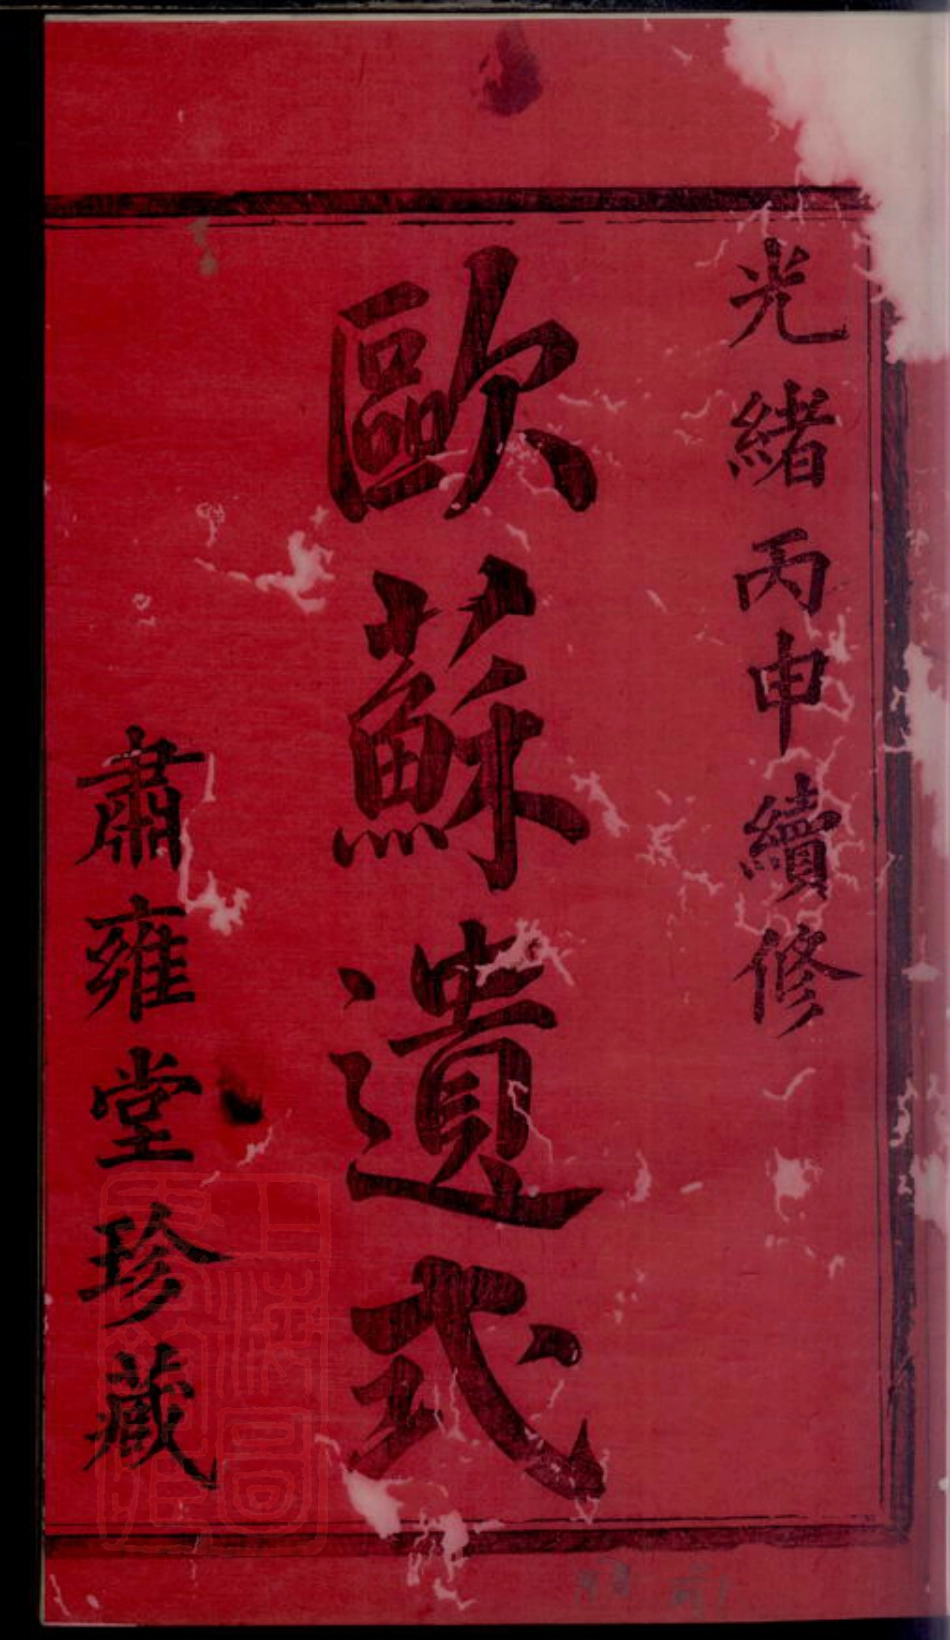 光緒丙申續修
歐蘇遺式
肅雍堂珍藏